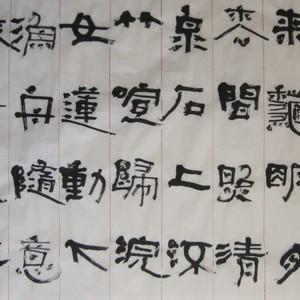 來龝明月
松間照清
泉石上流
竹喧歸浣
女蓮動下
漁舟隨意